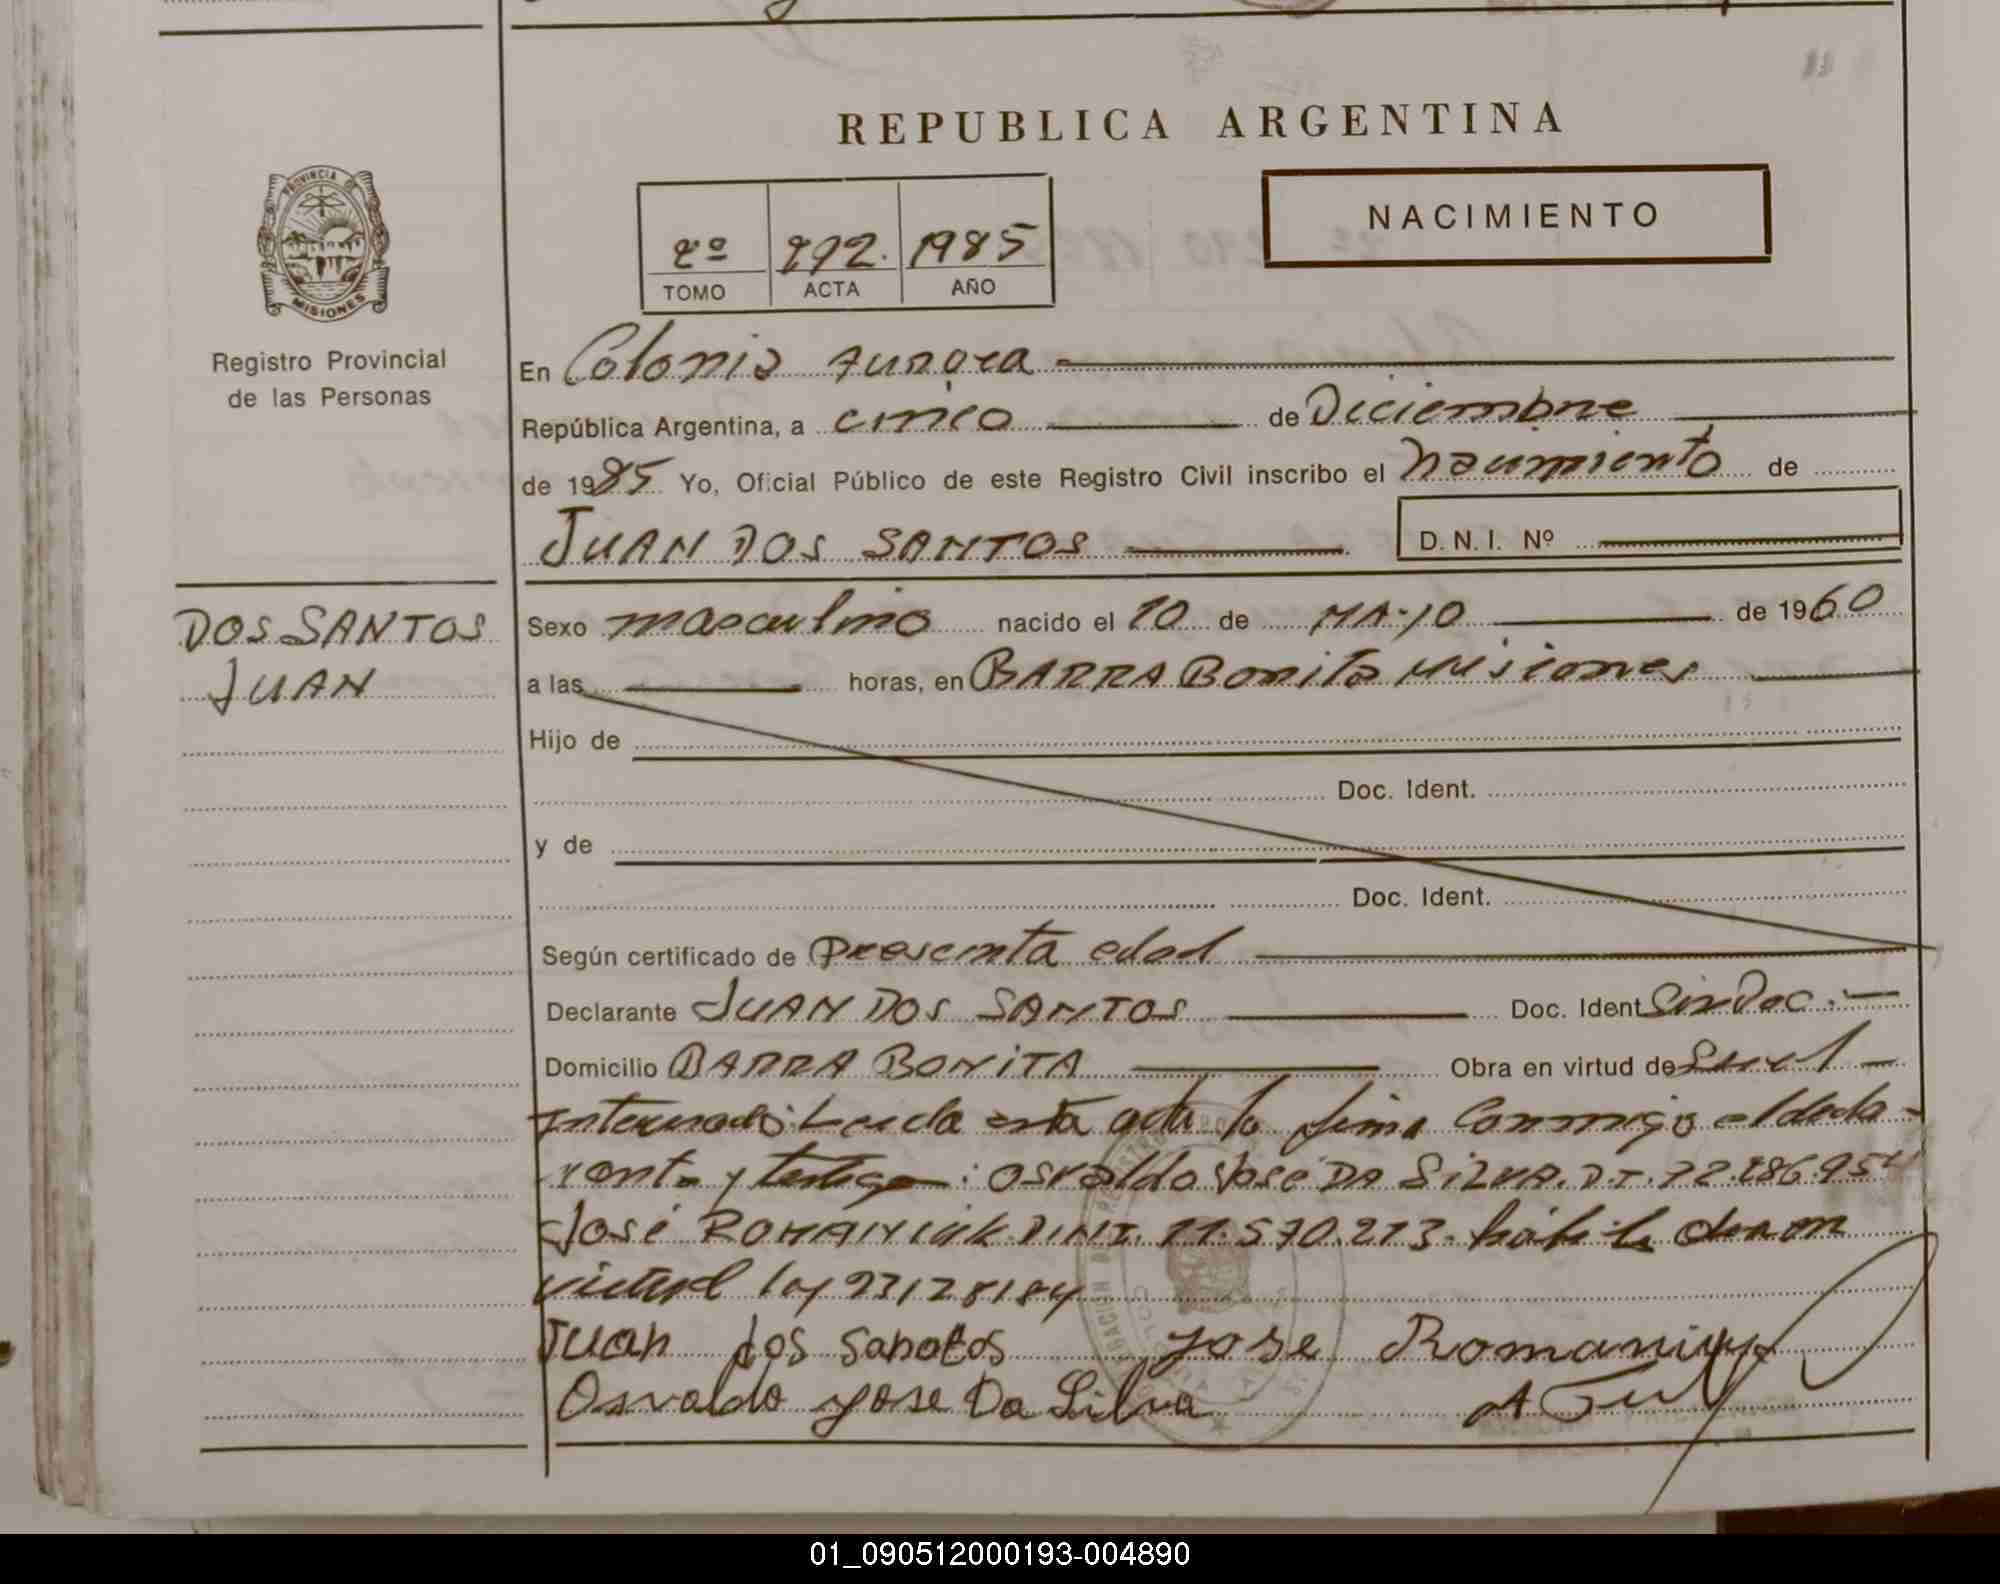 REPUBLICA ARGENTINA
NACIMIENTO
2º 292. 1985
TOMO ACTA AÑO
PROVINCIA DE MISIONES
Registro Provincial
de las Personas
En Colonia Aurora
República Argentina, a cinco de Diciembre
de 1985 Yo, Oficial Público de este Registro Civil inscribo el Nacimiento de
JUAN DOS SANTOS D.N.I. Nº
DOS SANTOS
JUAN
Sexo masculino nacido el 10 de MAYO de 1960
a las horas, en BARRA Bonita Misiones
Hijo de
Doc. Ident.
y de
Doc. Ident.
Según certificado de presunta edad
Declarante JUAN DOS SANTOS Doc. Ident Sin Doc.
Domicilio BARRA BONITA Obra en virtud de
Leida esta acta la firma Conmigo el decla-
rante y testigo: Osvaldo José DA SILVA. D.I.
José ROMANIUK D.N.I. 11.570.213.
ley
Juan dos sanotos Jose Romaniuk
Osvaldo Jose Da Silva
01_090512000193-004890